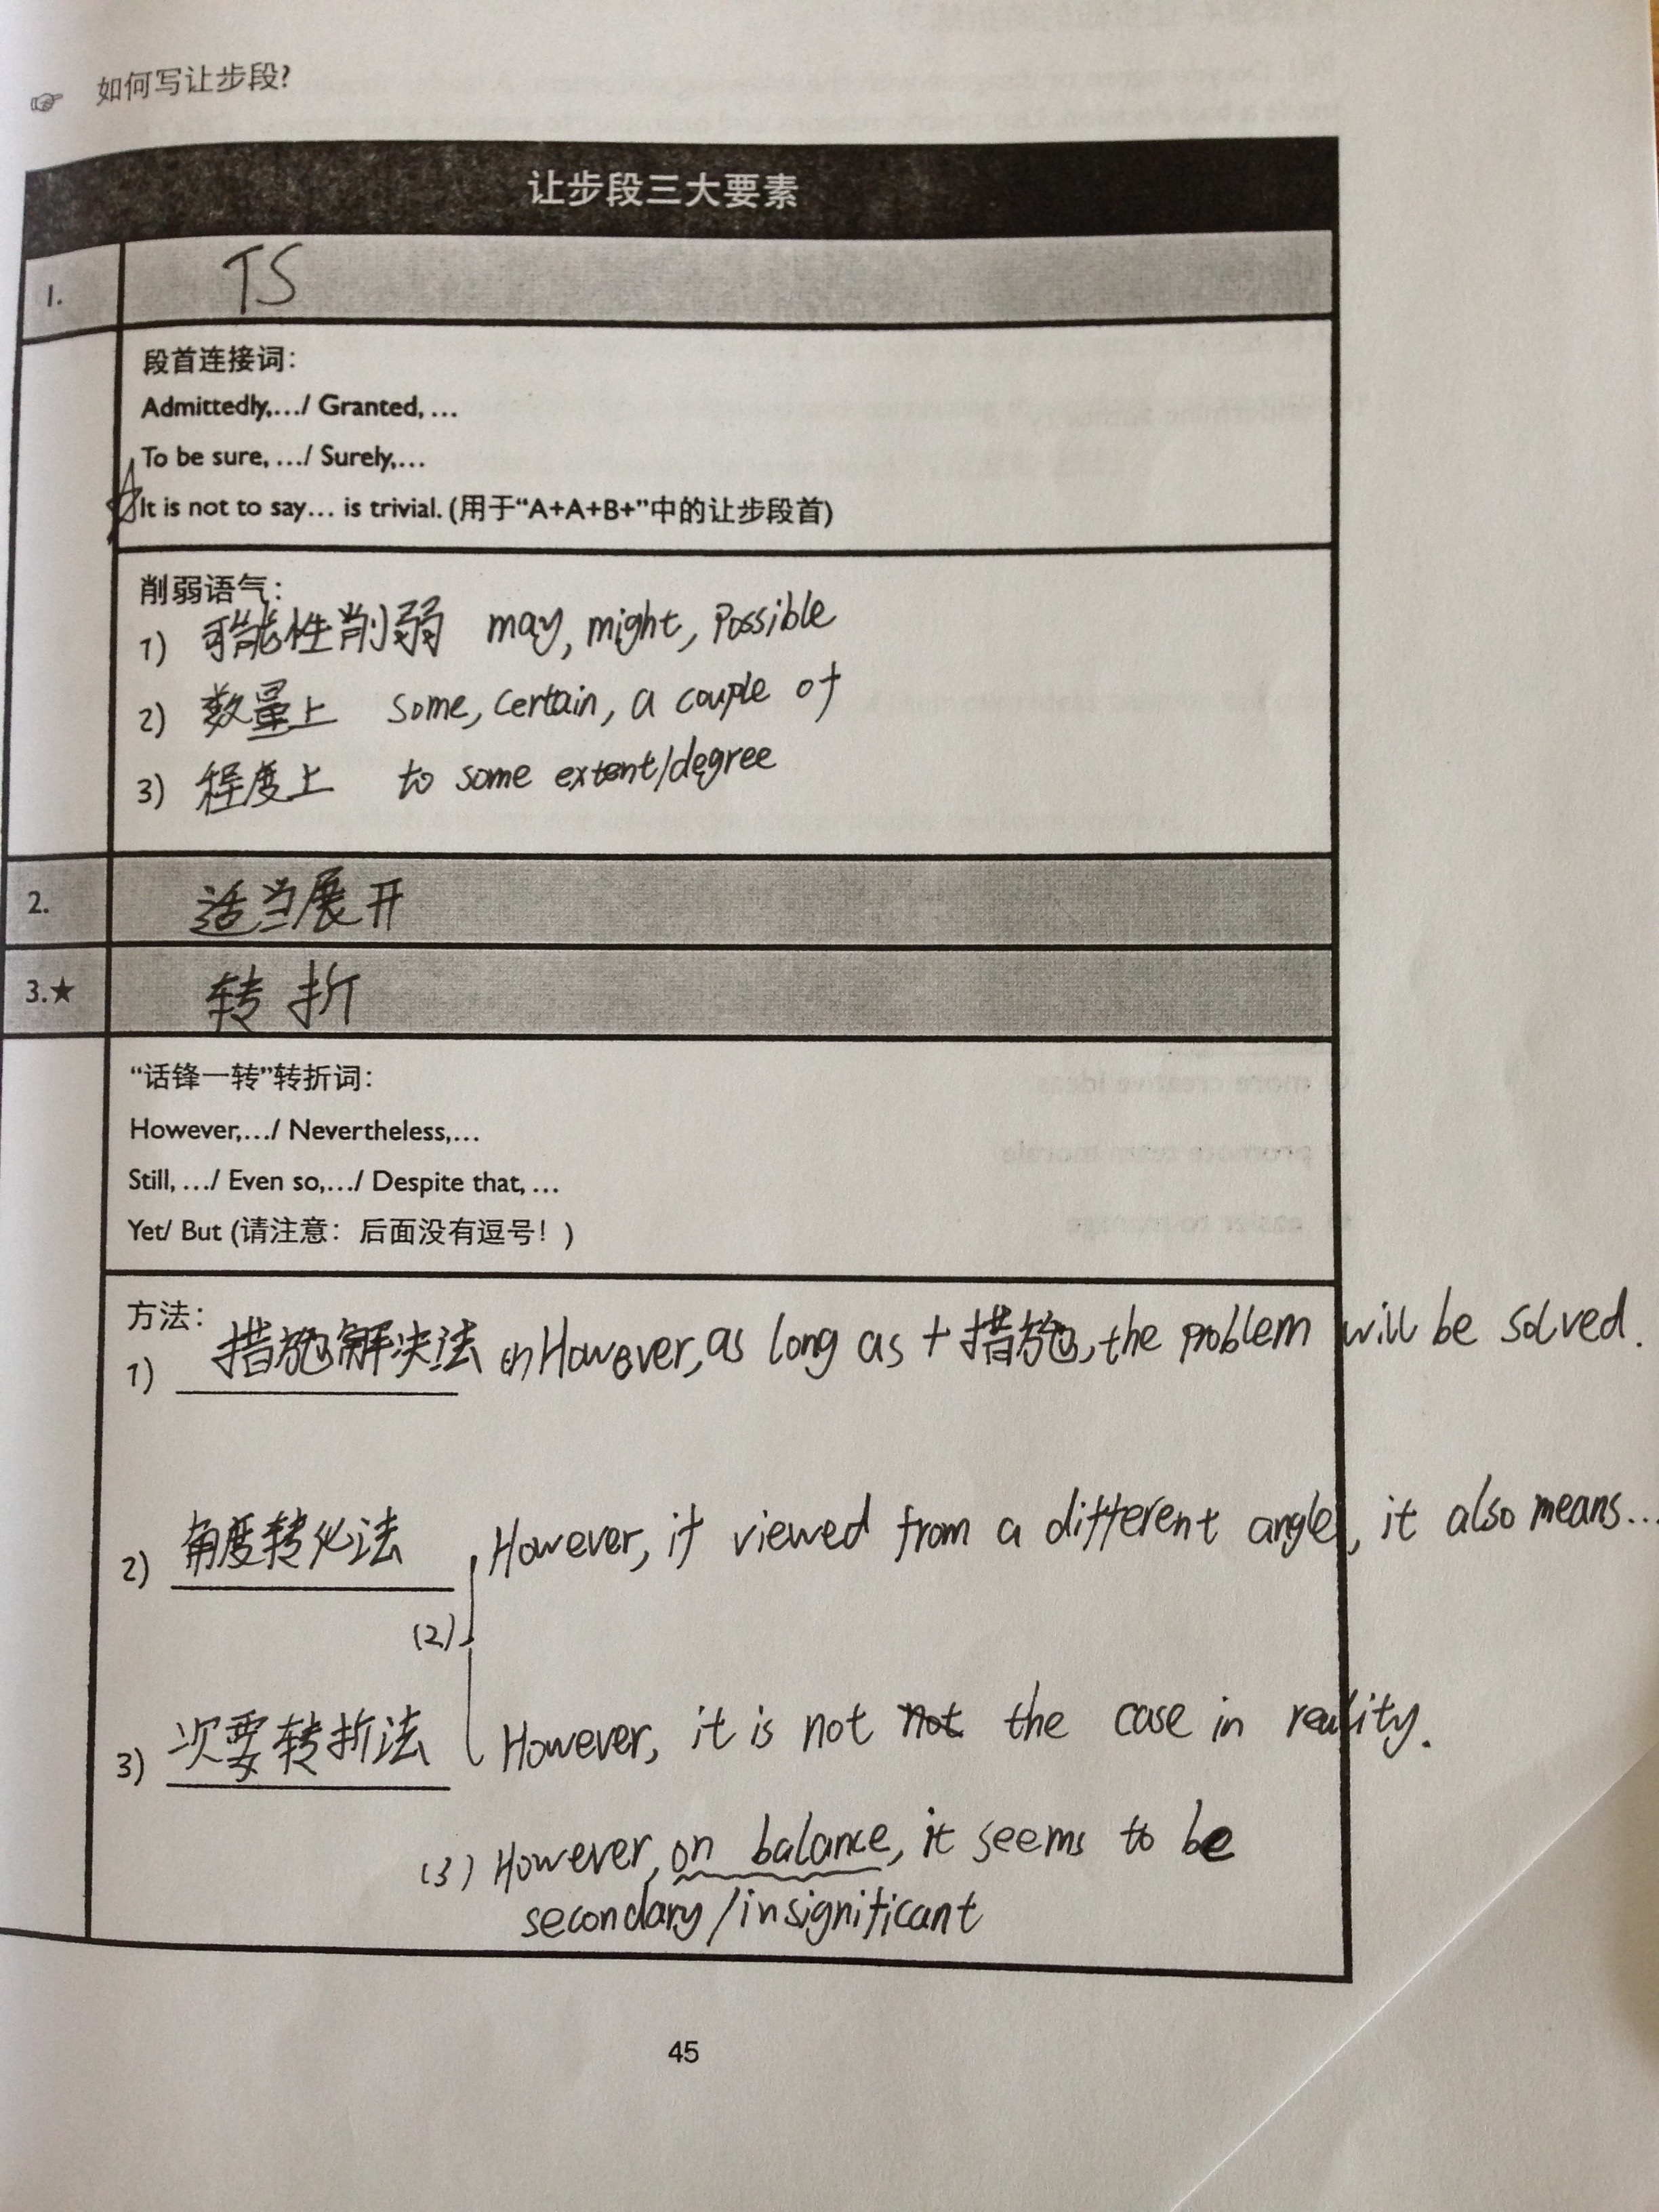 ☞ 如何写让步段?
让步段三大要素
1. TS
段首连接词：
Admittedly,…/ Granted, …
To be sure, …/ Surely,…
☆It is not to say… is trivial. (用于“A+A+B+”中的让步段首)
削弱语气：
1) 可能性削弱 may, might, possible
2) 数量上 some, certain, a couple of
3) 程度上 to some extent/degree
2. 适当展开
3.★ 转折
“话锋一转”转折词：
However,…/ Nevertheless,…
Still, …/ Even so,…/ Despite that, …
Yet/ But (请注意：后面没有逗号！)
方法：
1) 措施解决法 (1) However, as long as + 措施, the problem will be solved.
2) 角度转化法 However, if viewed from a different angle, it also means...
(2)
3) 次要转折法 However, it is not the case in reality.
(3) However, on balance, it seems to be
secondary/insignificant
45